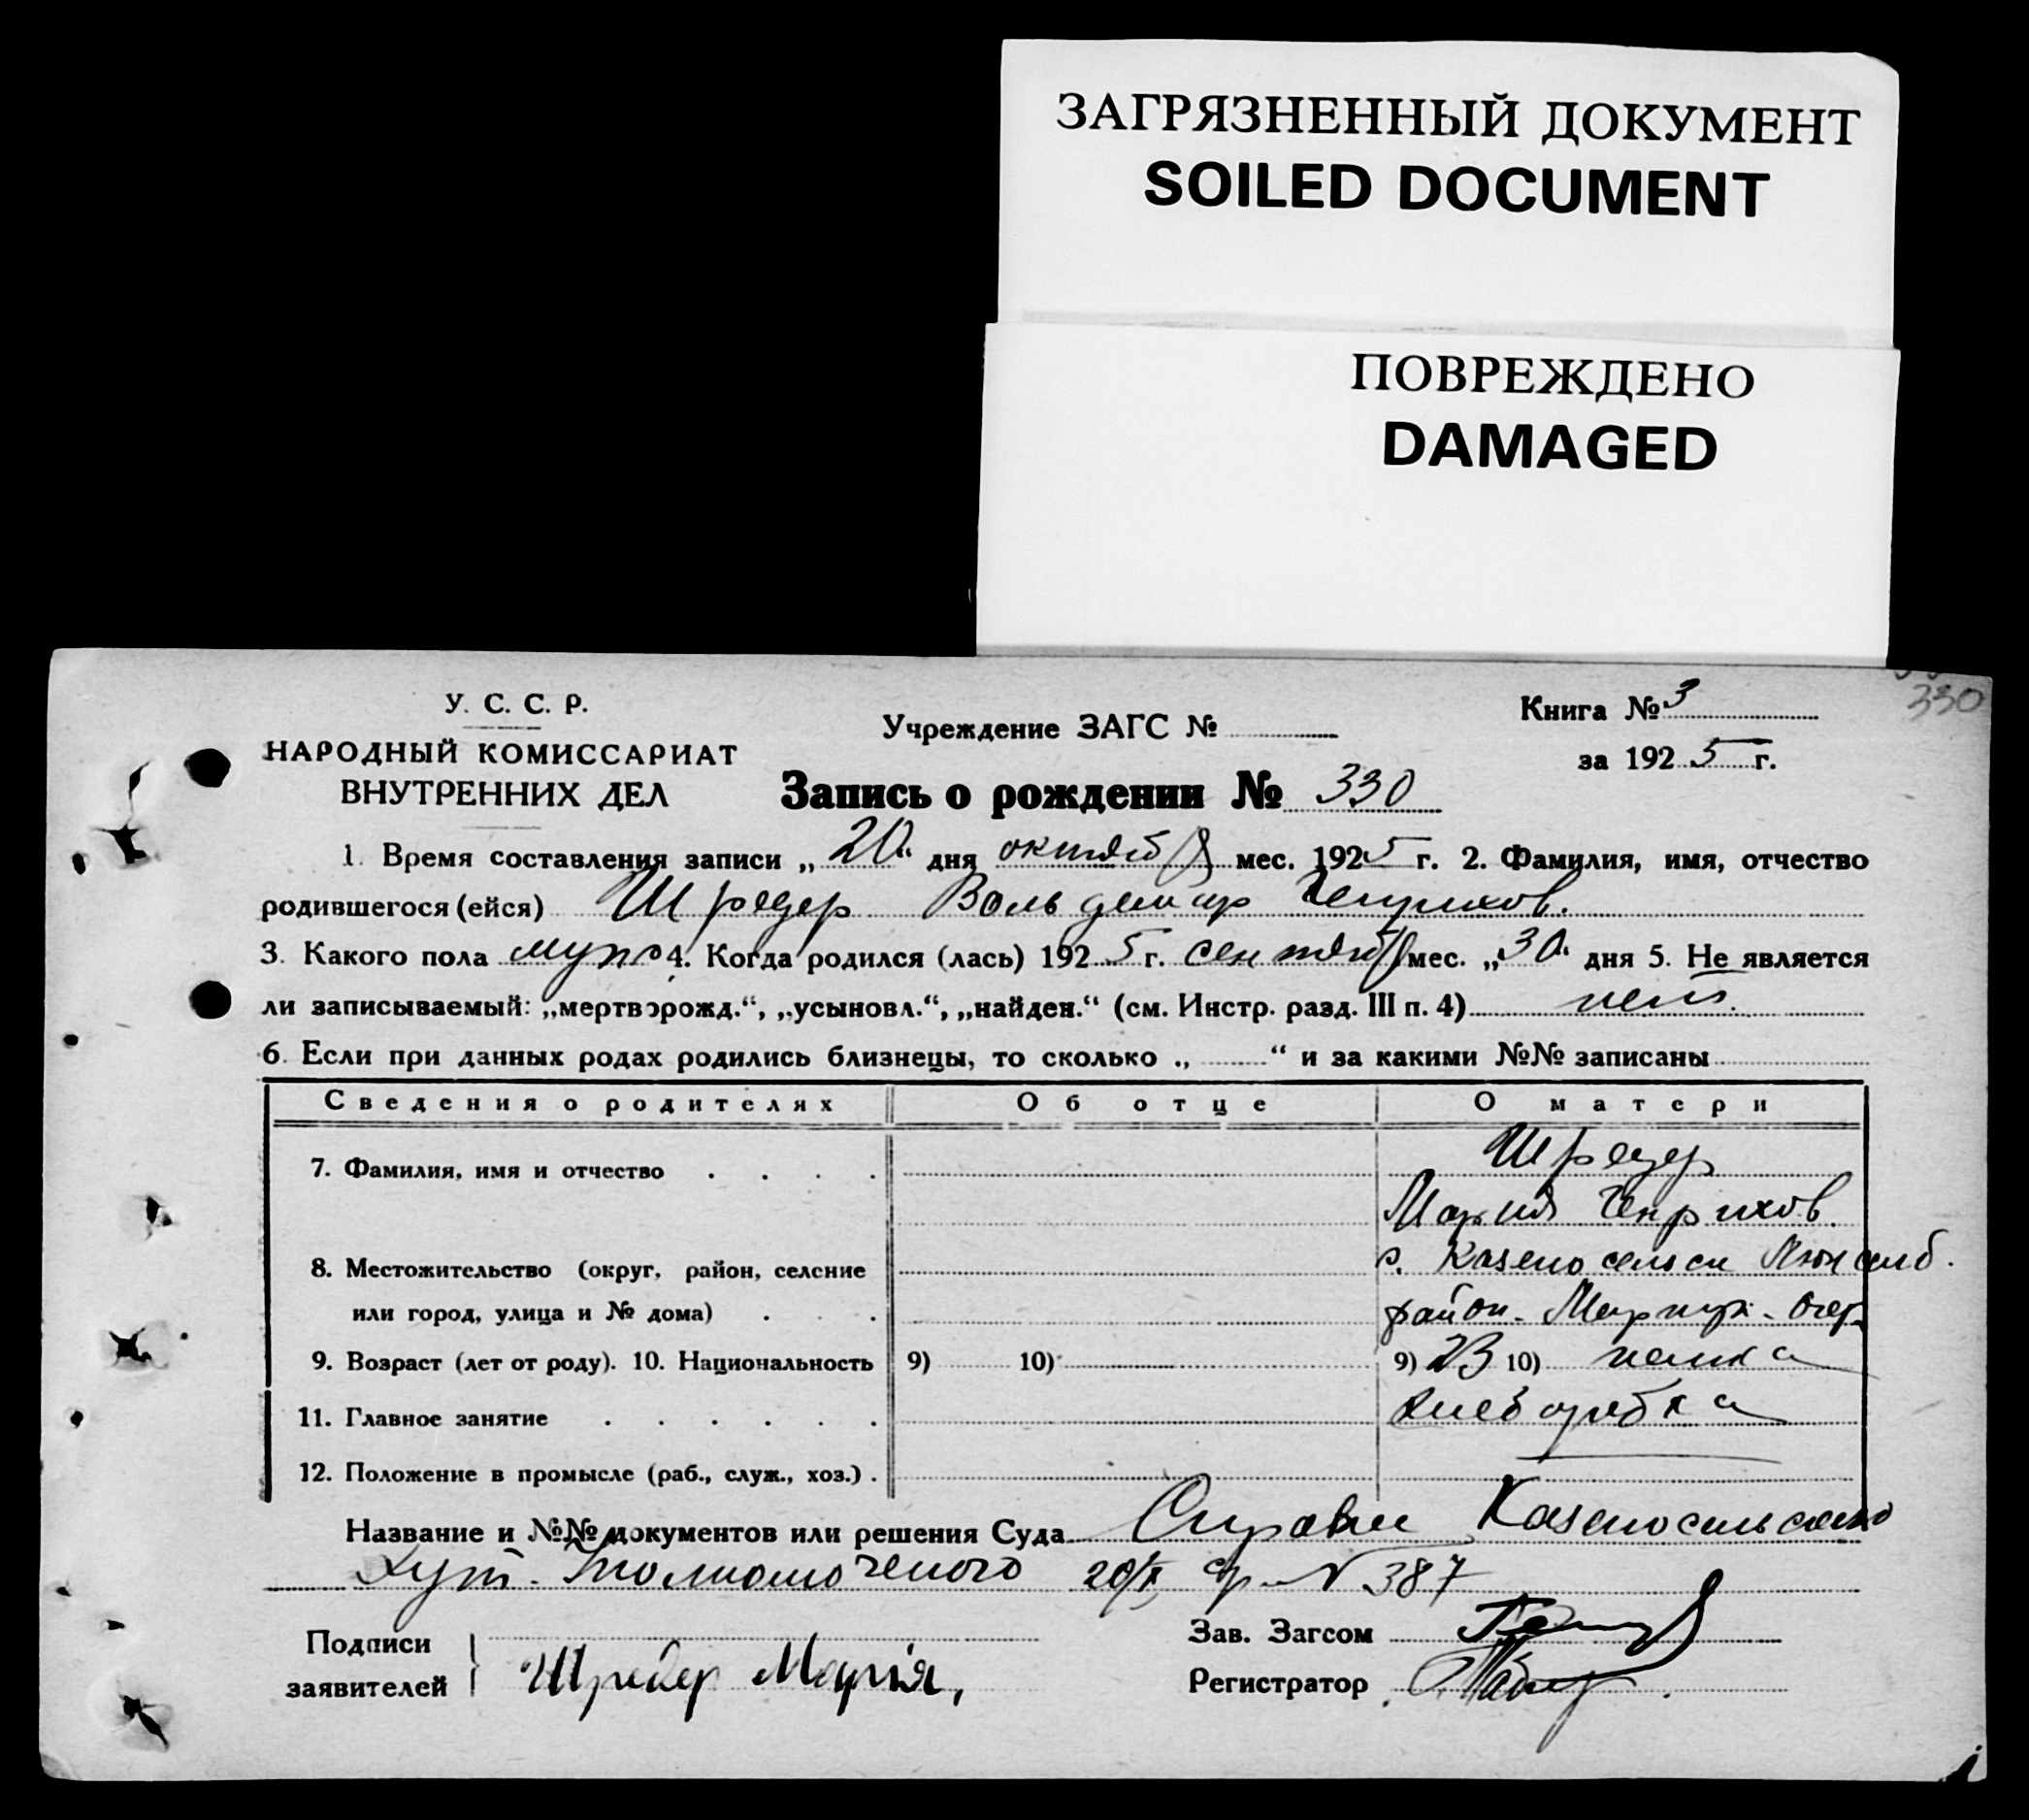 ЗАГРЯЗНЕННЫЙ ДОКУМЕНТ
SOILED DOCUMENT
ПОВРЕЖДЕНО
DAMAGED
330
У. С. С. Р.
НАРОДНЫЙ КОМИССАРИАТ
ВНУТРЕННИХ ДЕЛ
Учреждение ЗАГС №
Книга № 3
за 1925 г.
Запись о рождении № 330
1. Время составления записи „20“ дня октяб мес. 1925 г. 2. Фамилия, имя, отчество
родившегося (ейся) Шредер Вольдемар Генрихов.
3. Какого пола муж 4. Когда родился (лась) 1925 г. сентяб мес. „30“ дня 5. Не является
ли записываемый: „мертворожд.“, „усыновл.“, „найден.“ (см. Инстр. разд. III п. 4) нет.
6. Если при данных родах родились близнецы, то сколько „ “ и за какими №№ записаны
Сведения о родителях Об отце О матери
7. Фамилия, имя и отчество Шредер
Мария Генрихов.
8. Местожительство (округ, район, селение с.
или город, улица и № дома) район.
9. Возраст (лет от роду). 10. Национальность 9) 10) 9) 23 10) немка
11. Главное занятие хлеборобка
12. Положение в промысле (раб., служ., хоз.)
Название и №№ документов или решения Суда Справка
Хут. 20/X № 387
Подписи
заявителей Шредер Марія,
Зав. Загсом
Регистратор